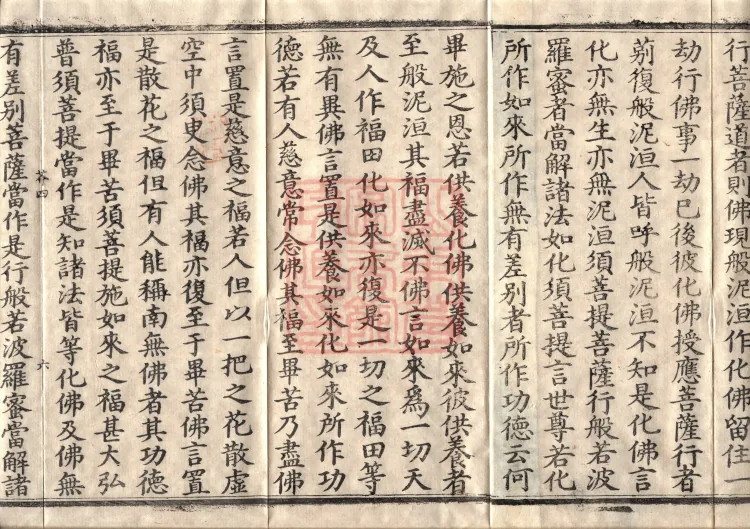 行菩薩道者則佛現般泥洹作化佛留住一
劫行佛事一劫已後彼化佛授應菩薩行者
莂復般泥洹人皆呼般泥洹不知是化佛言
化亦無生亦無泥洹須菩提菩薩行般若波
羅蜜者當解諸法如化須菩提言世尊若化
所作如來所作無有差別者所作功德云何
畢施之恩若供養化佛供養如來彼供養者
至般泥洹其福盡滅不佛言如來為一切天
及人作福田化如來亦復是一切之福田等
無有異佛言置是供養如來化如來所作功
德若有人慈意常念佛其福至畢苦乃盡佛
言置是慈意之福若人但以一把之花散虛
空中須臾念佛其福亦復至于畢苦佛言置
是散花之福但有人能稱南無佛者其功德
福亦至于畢苦須菩提施如來之福甚大弘
普須菩提當作是知諸法皆等化佛及佛無
芥四 六
有差別菩薩當作是行般若波羅蜜當解諸